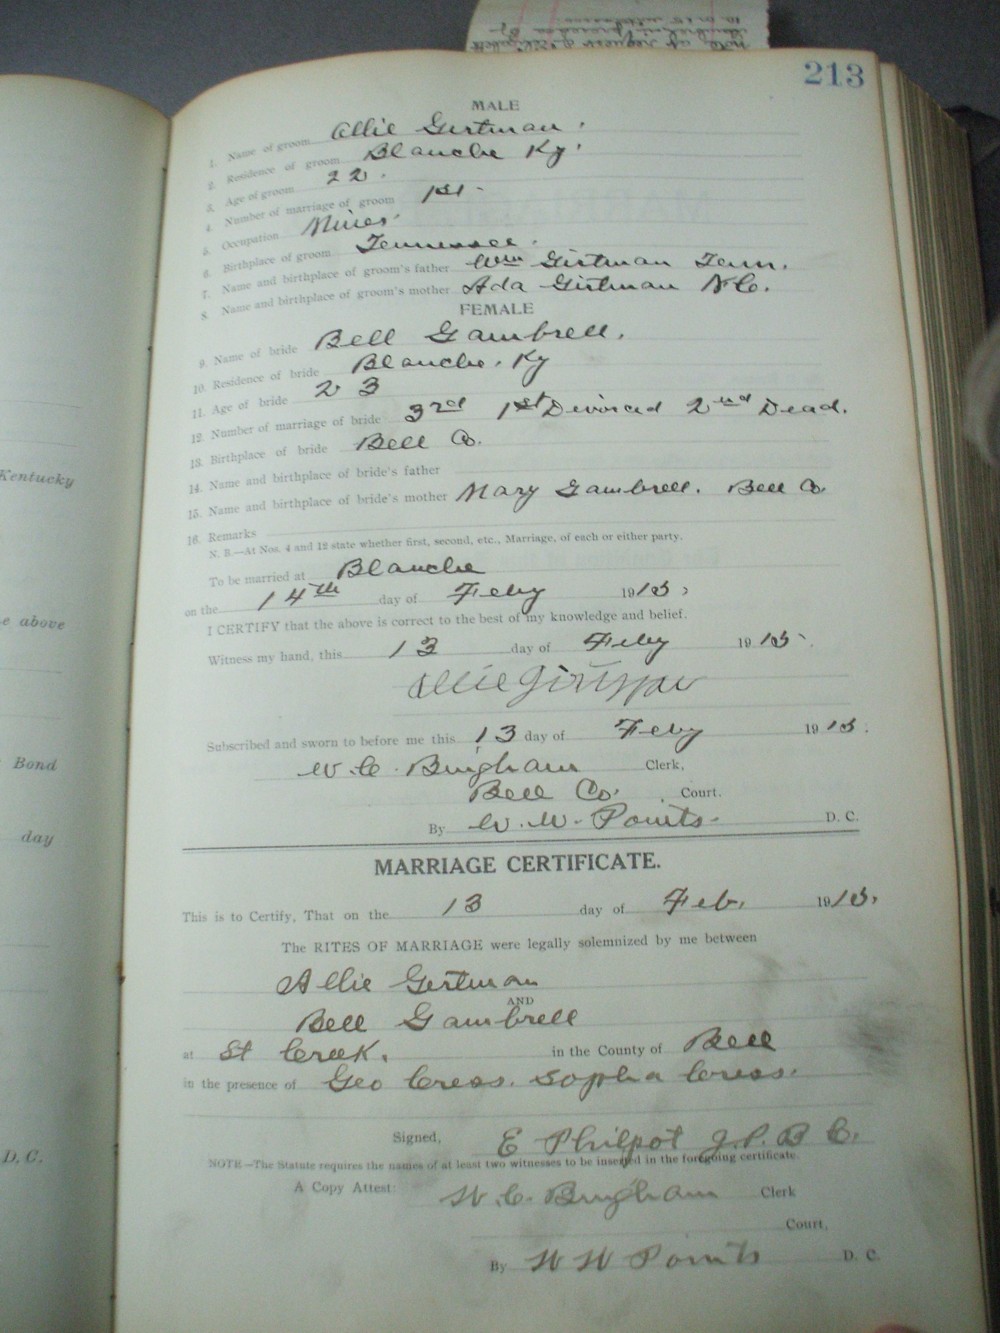 213
MALE
1. Name of groom Allie Girtman.
2. Residence of groom Blanche Ky.
3. Age of groom 22.
4. Number of marriage of groom 1st.
5. Occupation Miner.
6. Birthplace of groom Tennessee.
7. Name and birthplace of groom's father Wm Girtman Tenn.
8. Name and birthplace of groom's mother Ada Girtman N.C.
FEMALE
9. Name of bride Bell Gambrell.
10. Residence of bride Blanche. Ky
11. Age of bride 23
12. Number of marriage of bride 3rd 1st Divorced 2nd Dead.
13. Birthplace of bride Bell Co.
14. Name and birthplace of bride's father
15. Name and birthplace of bride's mother Mary Gambrell. Bell Co
16. Remarks
N. B.—At Nos. 4 and 12 state whether first, second, etc., Marriage, of each or either party.
To be married at Blanche
on the 14th day of Feby
I CERTIFY that the above is correct to the best of my knowledge and belief.
Witness my hand, this 13 day of Feby
Allie
Subscribed and sworn to before me this 13 day of Feby
W.C. Bingham Clerk,
Bell Co. Court.
By W. W. Points D. C.
MARRIAGE CERTIFICATE.
This is to Certify, That on the 13 day of Feb.
The RITES OF MARRIAGE were legally solemnized by me between
Allie Gertman
AND
Bell Gambrell
at St Creek. in the County of Bell
in the presence of Geo Cress. Sopha Cress.
Signed, E Philpot J.P.B.C.
NOTE—The Statute requires the names of at least two witnesses to be inserted in the foregoing certificate.
A Copy Attest: W.C. Bingham Clerk
Court,
By W W Points D. C.
Kentucky
e above
Bond
day
D. C.